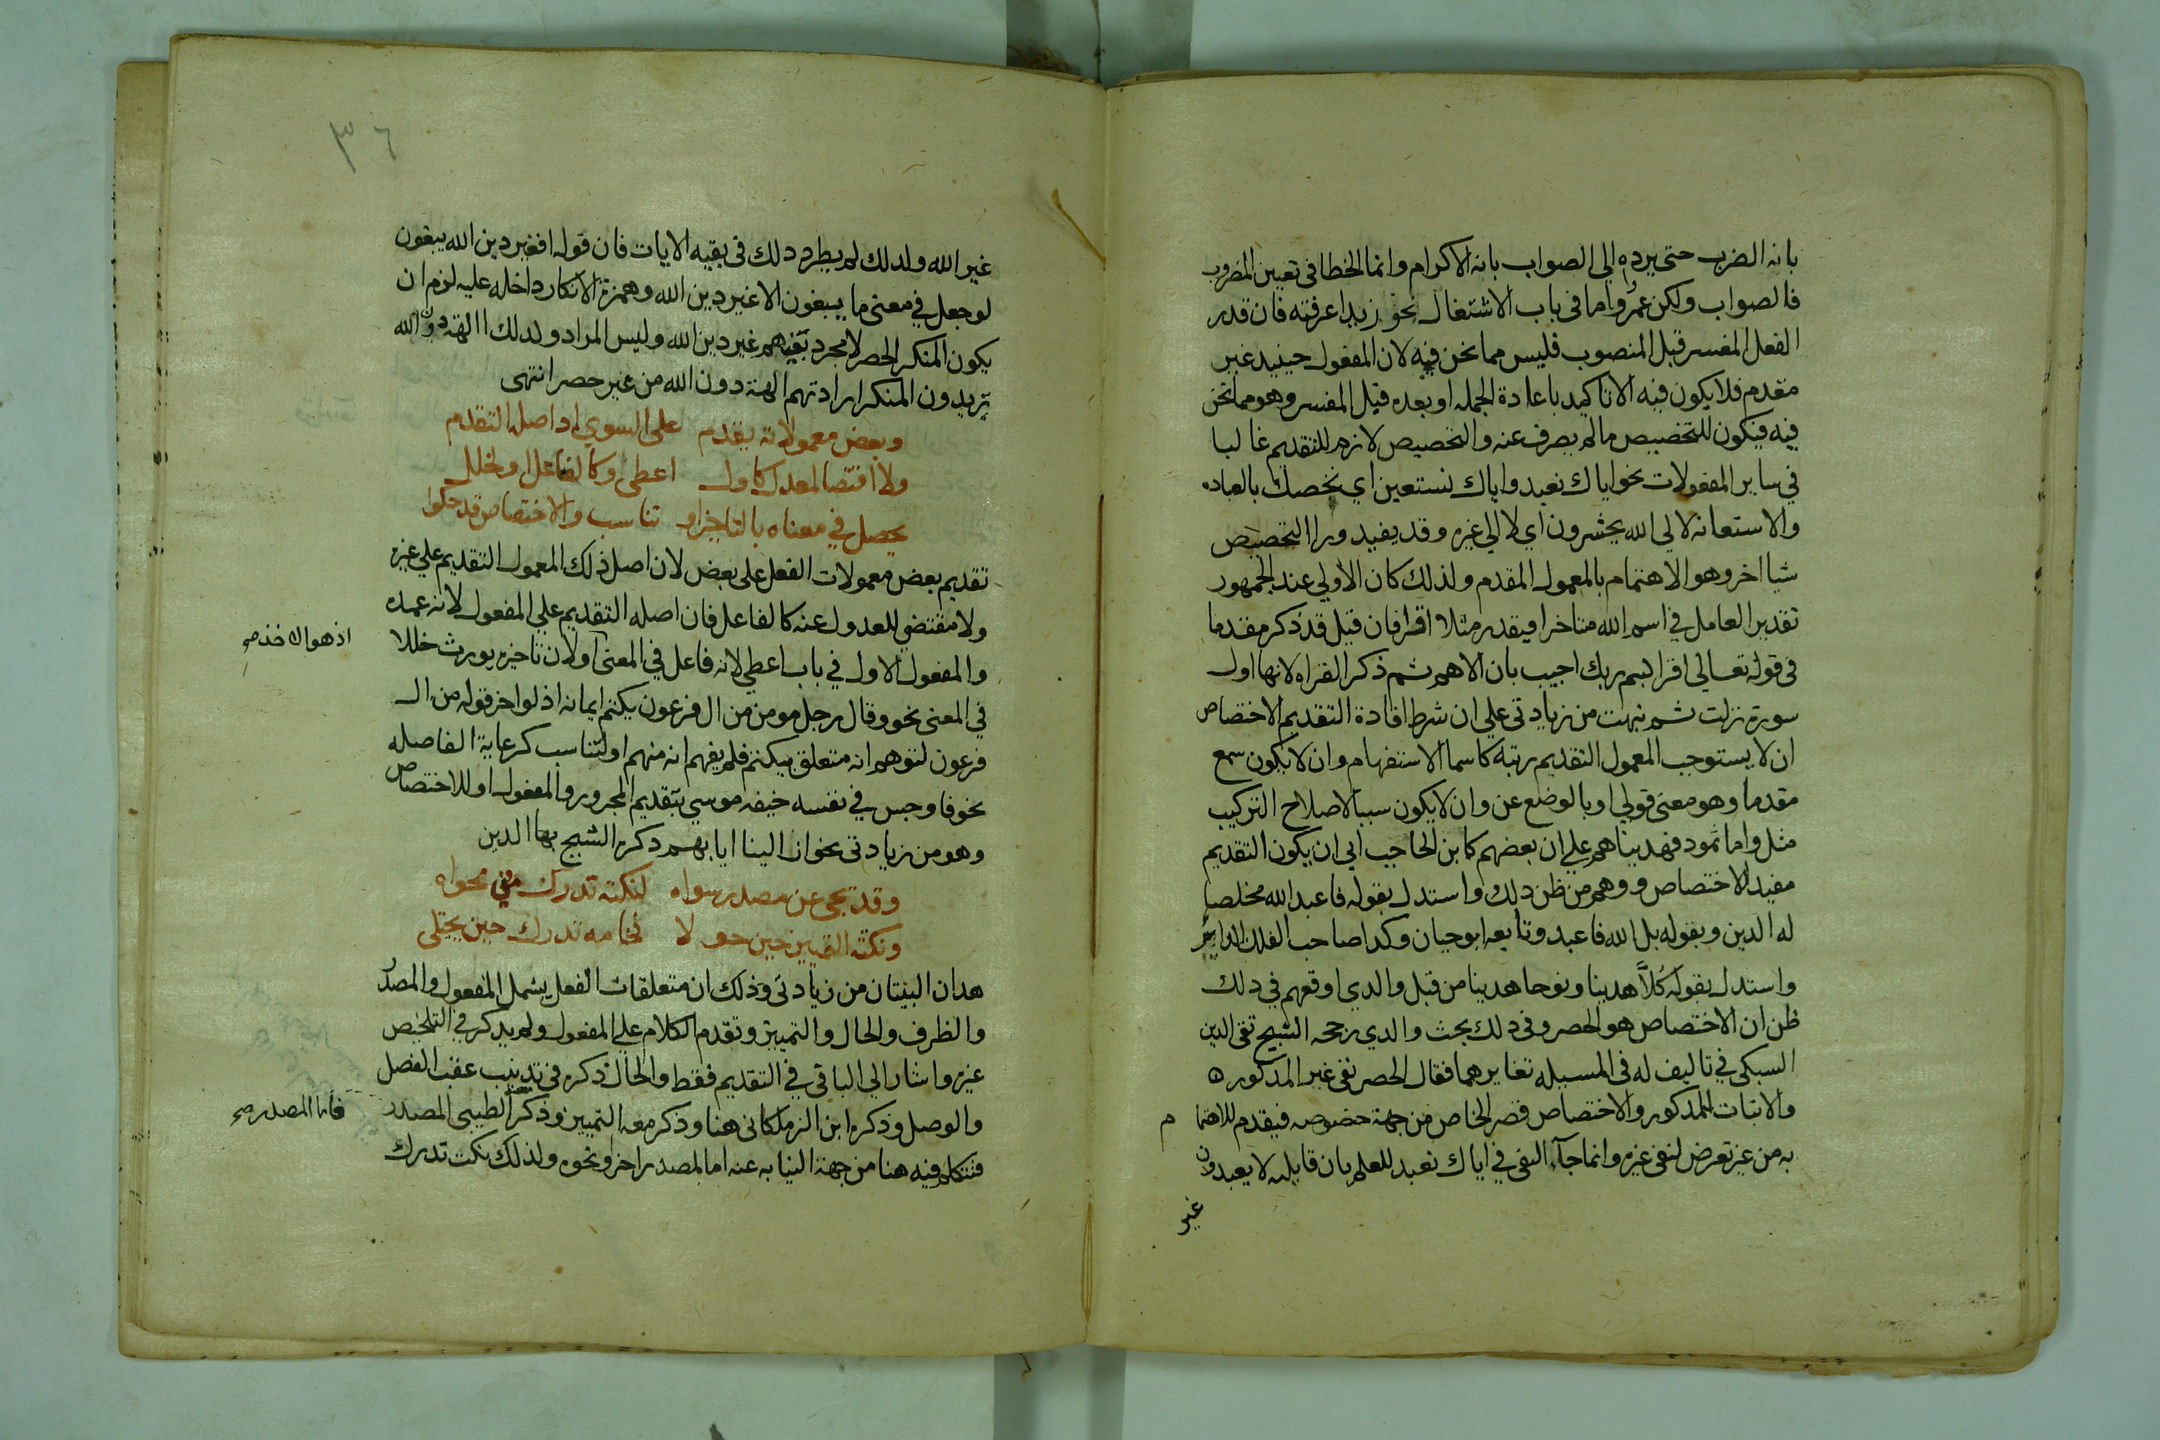 بانه الضرب حتى يرده الي الصواب بانه الاكرام وانما الخطا في تعيين المضروب
فالصواب ولكن عمرو واما في باب الاشتغال نحو زيدا عرفته فان قدر
الفعل المفسر قبل المنصوب فليس مما نحن فيه لان المفعول حينيد غير
مقدم فلا يكون فيه الا تاكيد باعادة الجمله او بعده قبل المفسر وهو مما نحن
فيه فيكون للتخصيص ما لم يصرف عنه والتخصيص لازم للتقديم غالبا
في ساير المفعولات نحو اياك نعبد واياك نستعين اي نخصك بالعباده
والاستعانه لالي الله يحشرون اي لا الي غيره وقد يفيد ورا التخصيص
شيا اخر وهو الاهتمام بالمعمول المقدم ولذلك كان الاولي عند الجمهور
تقدير العامل في اسم الله متاخرا فيقدر مثلا اقرا فان قيل قد ذكر مقدما
في قوله تعالي اقرا باسم ربك اجيب بان الاهم ثم ذكر القراه لانها اول
سورة نزلت ثم نبهت من زيادتي علي ان شرط افادة التقديم الاختصاص
ان لا يستوجب المعمول التقديم رتبة كاسما الاستفهام وان لا يكون سمع
مقدما وهو معنى قولي او بالوضع عن وان لا يكون سببا لاصلاح التركيب
مثل واما ثمود فهديناهم علي ان بعضهم كابن الحاجب ابي ان يكون التقديم
مفيد الاختصاص ووهم من ظن ذلك واستدل بقوله فاعبد الله مخلصا
له الدين وبقوله بل الله فاعبد وتابعه ابو حيان وكدا صاحب الفلك الداير
واستدل بقوله كلا هدينا ونوحا هدينا من قبل والدي اوقعهم في دلك
ظن ان الاختصاص هو الحصر وفي دلك بحث والدي رجحه الشيخ تقي الدين
السبكي في تاليف له في المسيله تغايرهما فقال الحصر نفي غير المدكور
والاثبات للمدكور والاختصاص قصر الخاص من جهة خصوصه فيقدم للاهتما م
به من غير تعرض لنفي غيره وانما جآء النفي في اياك نعبد للعلم بان قايليه لا يعبدون
غير
٣٦
غير الله ولدلك لم يطرد دلك في بقيه الايات فان قوله افغير دين الله يبغون
لو جعل في معنى ما يبغون الا غير دين الله وهمزة الانكار داخله عليه لزم ان
يكون المنكر الحصر لا مجرد بغيهم غير دين الله وليس المراد ولدلك االهة دون الله
تريدون المنكر ارادتهم الهة دون الله من غير حصر انتهى
وبعض معمولاته يقدم على السوي اد اصله التقدم
ولا اقتضا لمعدل كاول اعطى وكالفاعل او لخلل
يحصل في معناه بالتاخير او تناسب والاختصاص قد حكوا
تقديم بعض معمولات الفعل علي بعض لان اصل ذلك المعمول التقديم علي غيره
ولا مقتضي للعدول عنه كالفاعل فان اصله التقديم علي المفعول لانه عمده
والمفعول الاول في باب اعطي لانه فاعل في المعنى او لان تاخيره يورث خللا
اذ هو الاخذ صح
في المعنى نحو وقال رجل مومن من ال فرعون يكتم ايمانه اذ لو اخر قوله من ال
فرعون لتوهم انه متعلق بيكتم فلم يفهم انه منهم او لتناسب كرعاية الفاصله
نحو فاوجس في نفسه خيفه موسي بتقديم المجرور والمفعول او للاختصاص
وهو من زيادتي نحو ان الينا ايابهم دكره الشيخ بها الدين
وقد يجي عن مصدر سواه لنكتة تدرك من نحواه
ونكتة التمييز حين حولا فخامه تدرك حين يجتلى
هدان البيتان من زيادتي وذلك ان متعلقات الفعل يشمل المفعول والمصدر
والظرف والحال والتمييز وتقدم الكلام علي المفعول ولم يدكر في التلخيص
غيره واشار الي الباقي في التقديم فقط والحال ذكره في تدنيب عقب الفصل
والوصل وذكره ابن الزملكاني هنا وذكر معه التمييز وذكر الطيبي المصدر
فاما المصدر صح
فنتكلم فيه هنا من جهة النيابه عنه اما بمصدر اخر ونحوه ولذلك نكت تدرك